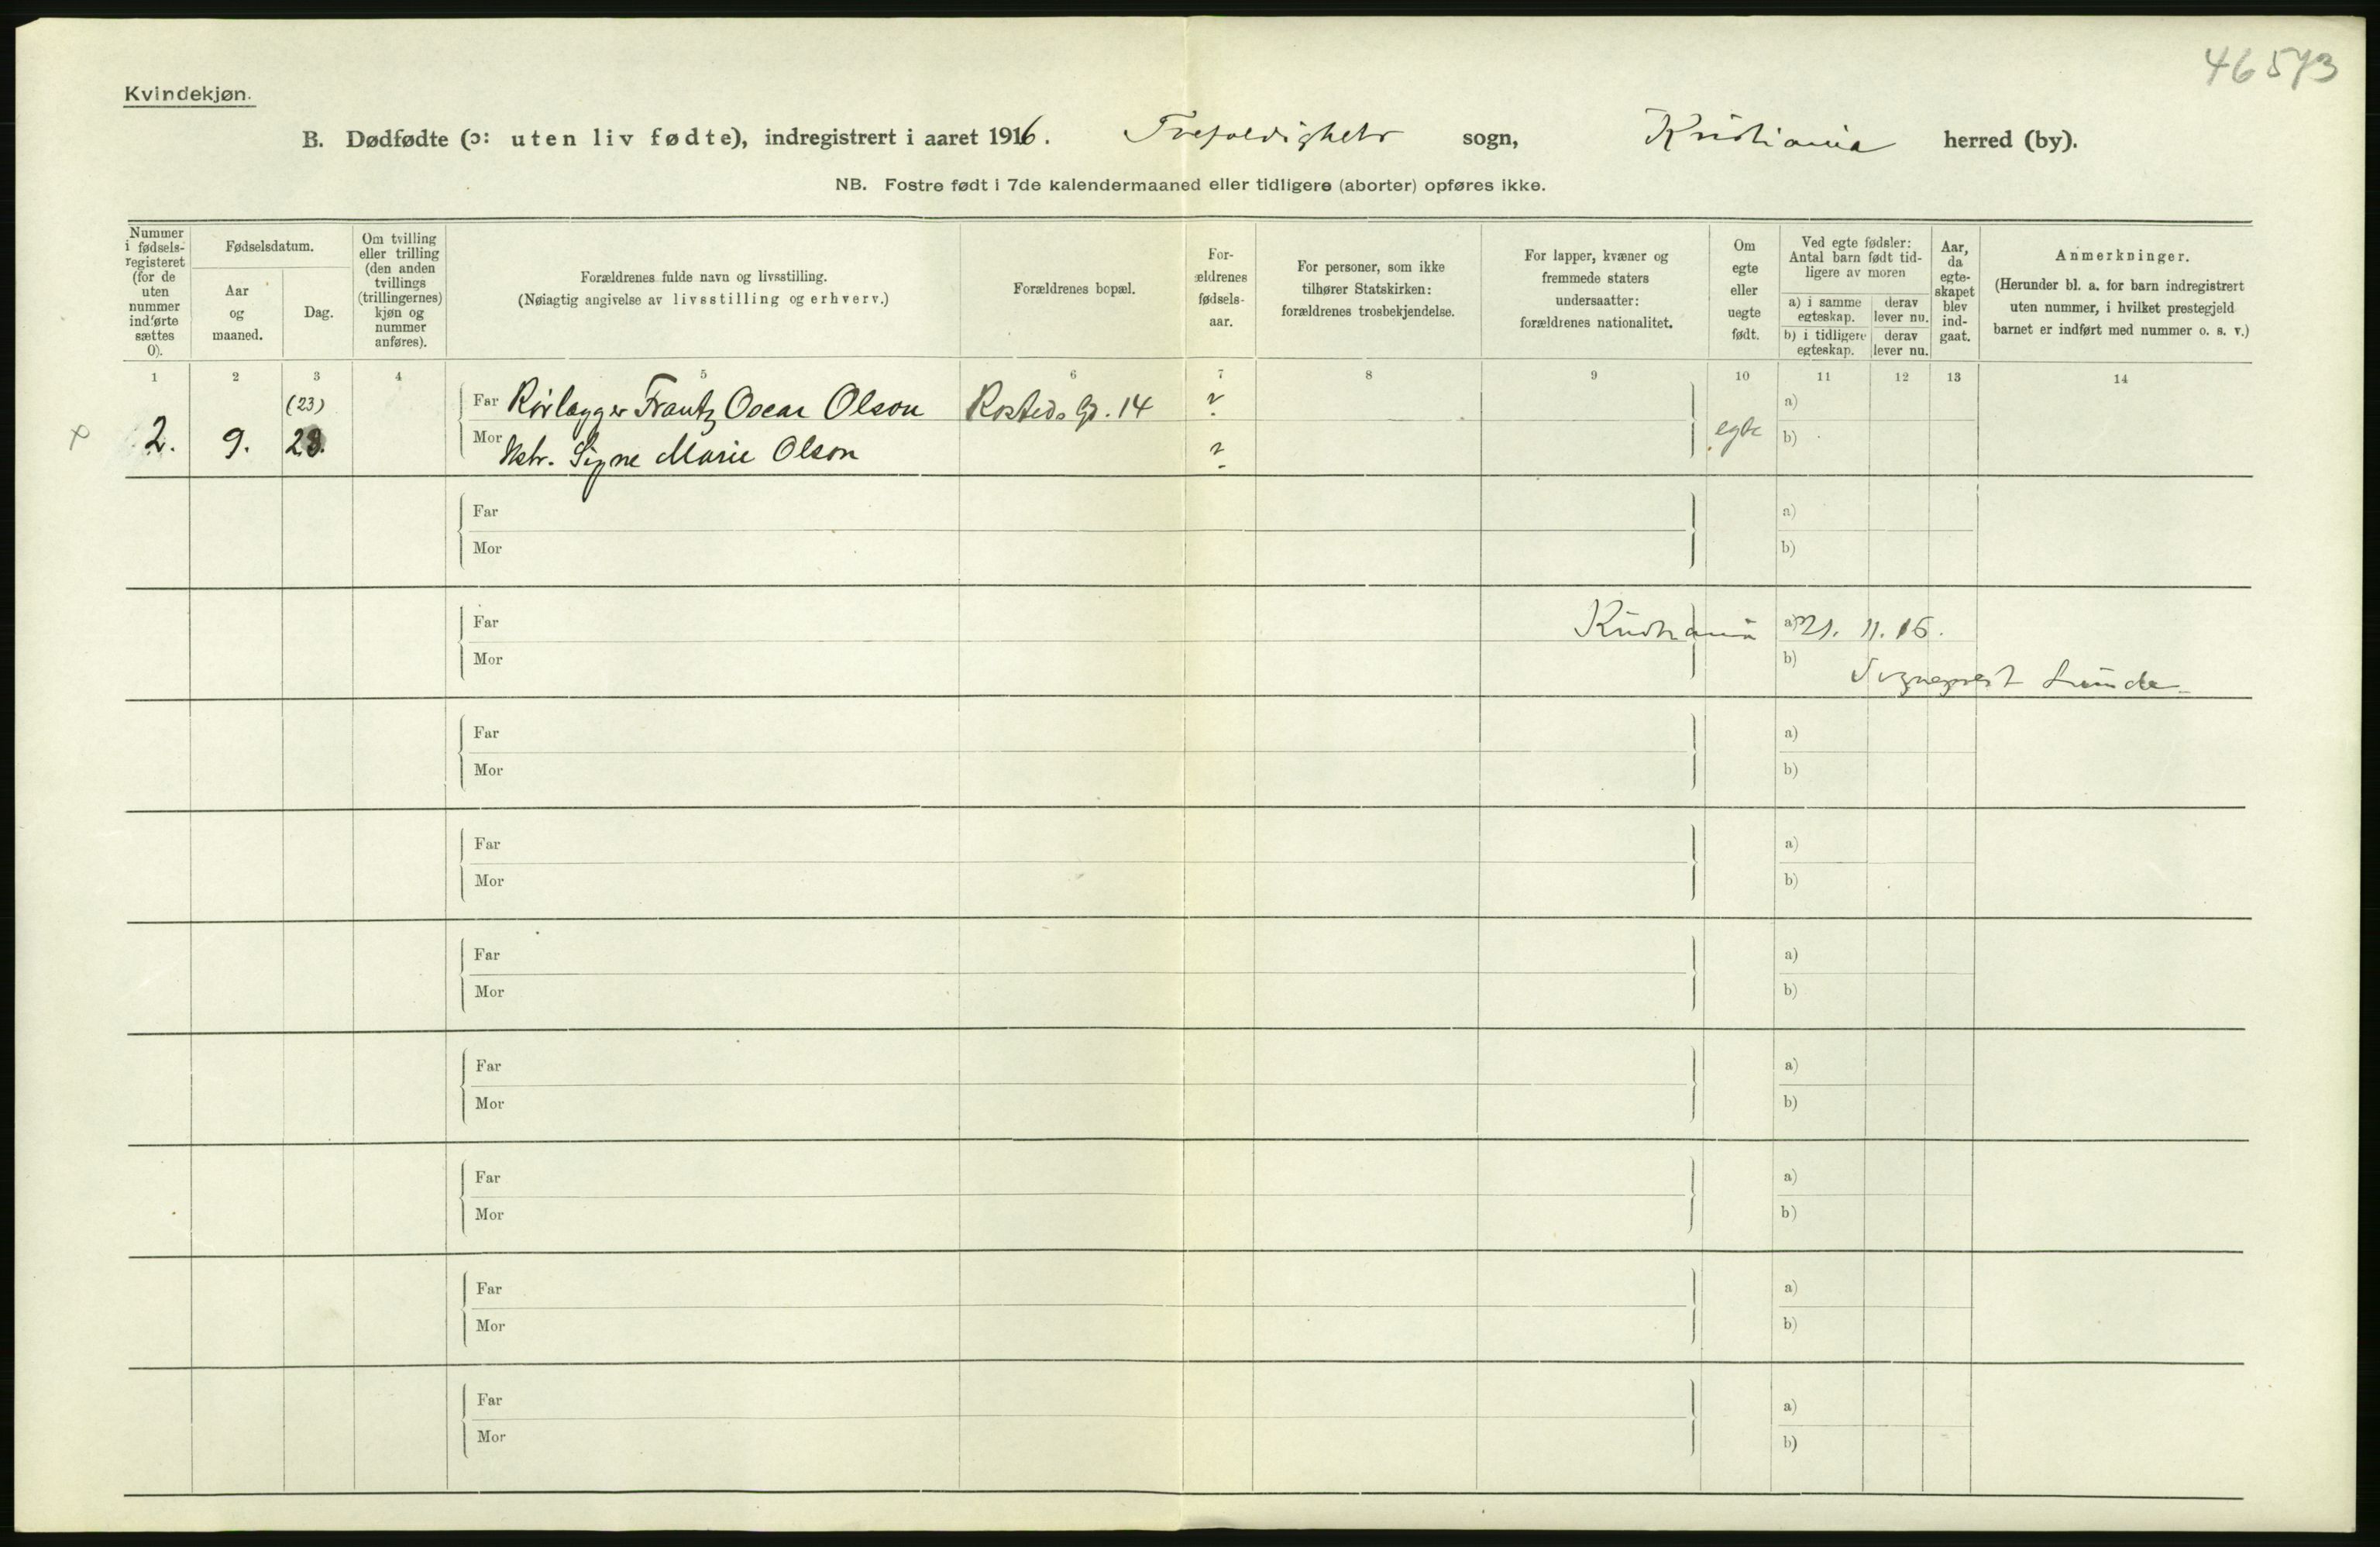 46573
Kvindekjøn.
B. Dødfødte (ɔ: uten liv fødte), indregistrert i aaret 1916. Trefoldighets sogn, Kristiania herred (by).
NB. Fostre født i 7de kalendermaaned eller tidligere (aborter) opføres ikke.
Nummer i fødsels-registeret (for de uten nummer indførte sættes 0).
Fødselsdatum.
Aar og maaned.
Dag.
Om tvilling eller trilling (den anden tvillings (trillingernes) kjøn og nummer anføres).
Forældrenes fulde navn og livsstilling.
(Nøiagtig angivelse av livsstilling og erhverv.)
Forældrenes bopæl.
For-ældrenes fødsels-aar.
For personer, som ikke tilhører Statskirken: forældrenes trosbekjendelse.
For lapper, kvæner og fremmede staters undersaatter: forældrenes nationalitet.
Om egte eller uegte født.
Ved egte fødsler: Antal barn født tid-ligere av moren
a) i samme egteskap.
derav lever nu.
b) i tidligere egteskap.
derav lever nu.
Aar, da egte-skapet blev ind-gaat.
Anmerkninger.
(Herunder bl. a. for barn indregistrert uten nummer, i hvilket prestegjeld barnet er indført med nummer o. s. v.)
1 2 3 4 5 6 7 8 9 10 11 12 13 14
(23)
Far Rørlægger Frantz Oscar Olson Rosteds Gd. 14 ? a)
2. 9. 23. egte
Mor Hstr. Signe Marie Olson ? b)
Far a)
Mor b)
Far Kristiania a) 21. 11. 16.
Mor b)
Sogneprest Lunde
Far a)
Mor b)
Far a)
Mor b)
Far a)
Mor b)
Far a)
Mor b)
Far a)
Mor b)
Far a)
Mor b)
Far a)
Mor b)